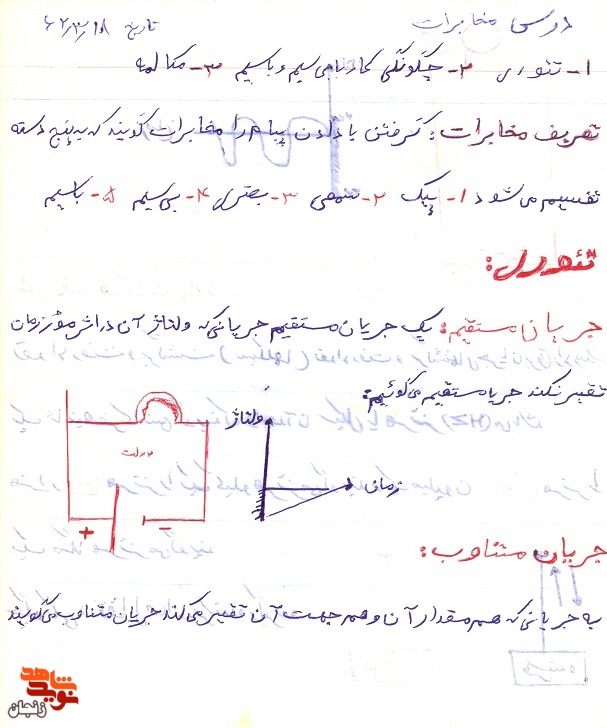 درس مخابرات تاریخ ۶۲/۳/۱۸
۱- تئوری ۲- چگونگی کار با بی سیم و باسیم ۳- مکالمه
تعریف مخابرات: گرفتن یا دادن پیام را مخابرات گویند که به پنج دسته
تقسیم می شود ۱- پیک ۲- سمعی ۳- بصری ۴- بی سیم ۵- باسیم
تئوری:
جریان مستقیم: یک جریان مستقیم جریانی که ولتاژ آن در اثر مرور زمان
تغییر نکند جریا مستقیم می گوئیم:
ولتاژ
۲ ولت
زمان
+ -
جریان متناوب:
به جریانی که هم مقدار آن و هم جهت آن تغییر می کند جریان متناوب می گویند
نوید شاهد
زنجان